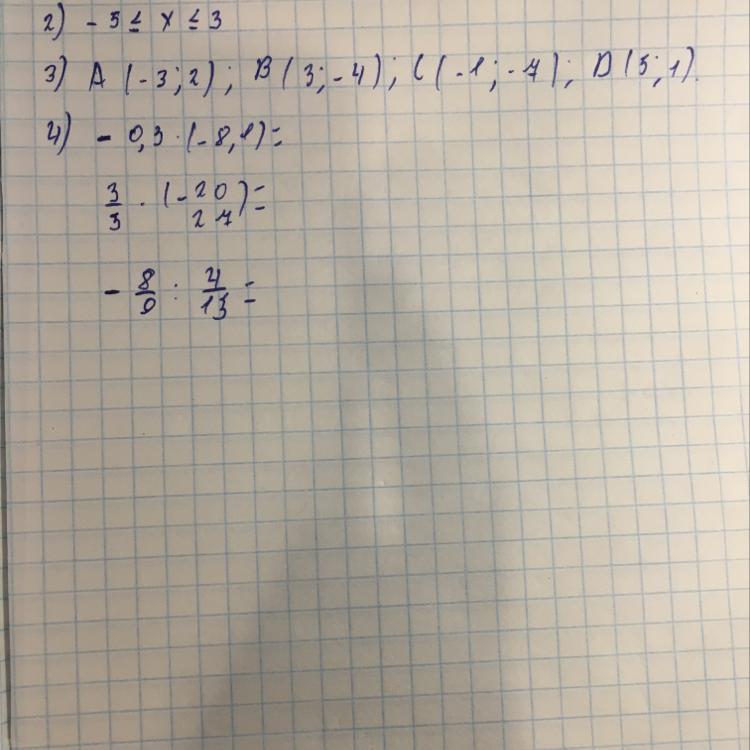 2) - 5 ≤ x ≤ 3
3) A (-3; 2); B (3; -4); C (-1; -7); D (5; 1).
4) - 0,3 · (-8,1) =
3/5 · (-20/27) =
- 8/9 : 4/15 =